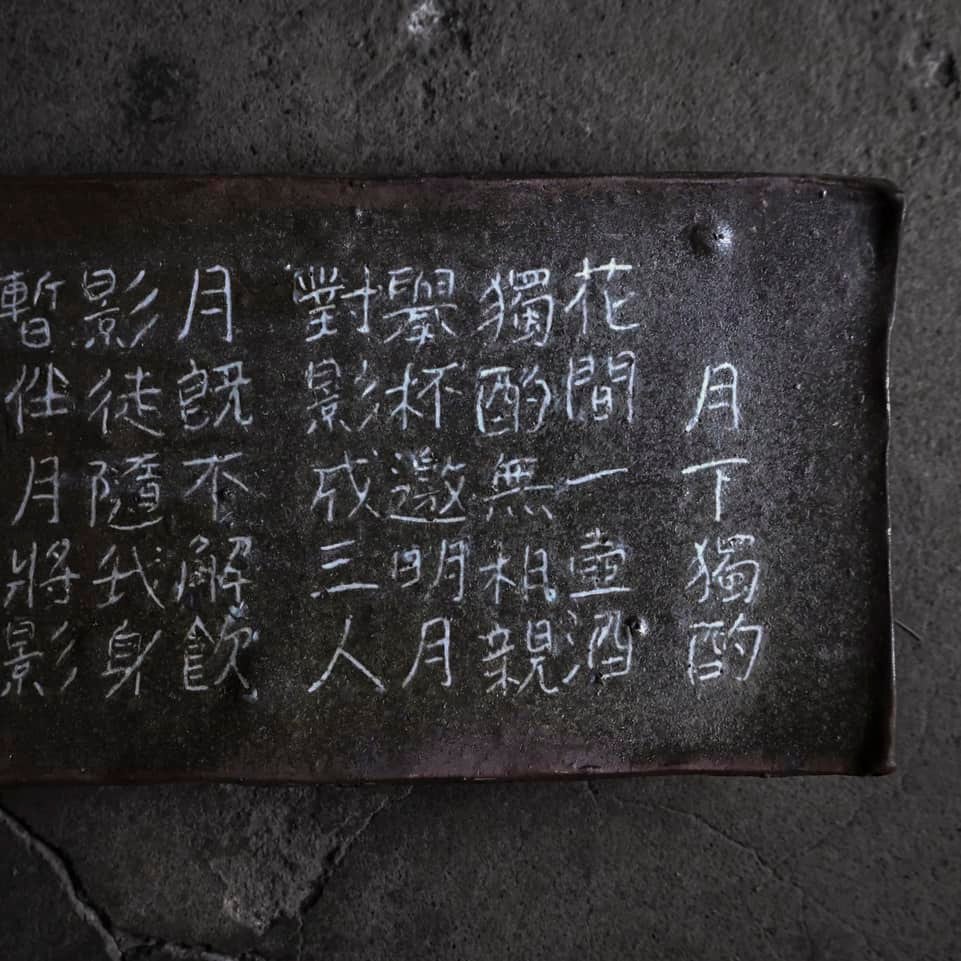 月下獨酌
花間一壺酒
獨酌無相親
舉杯邀明月
對影成三人
月既不解飲
影徒隨我身
暫伴月將影